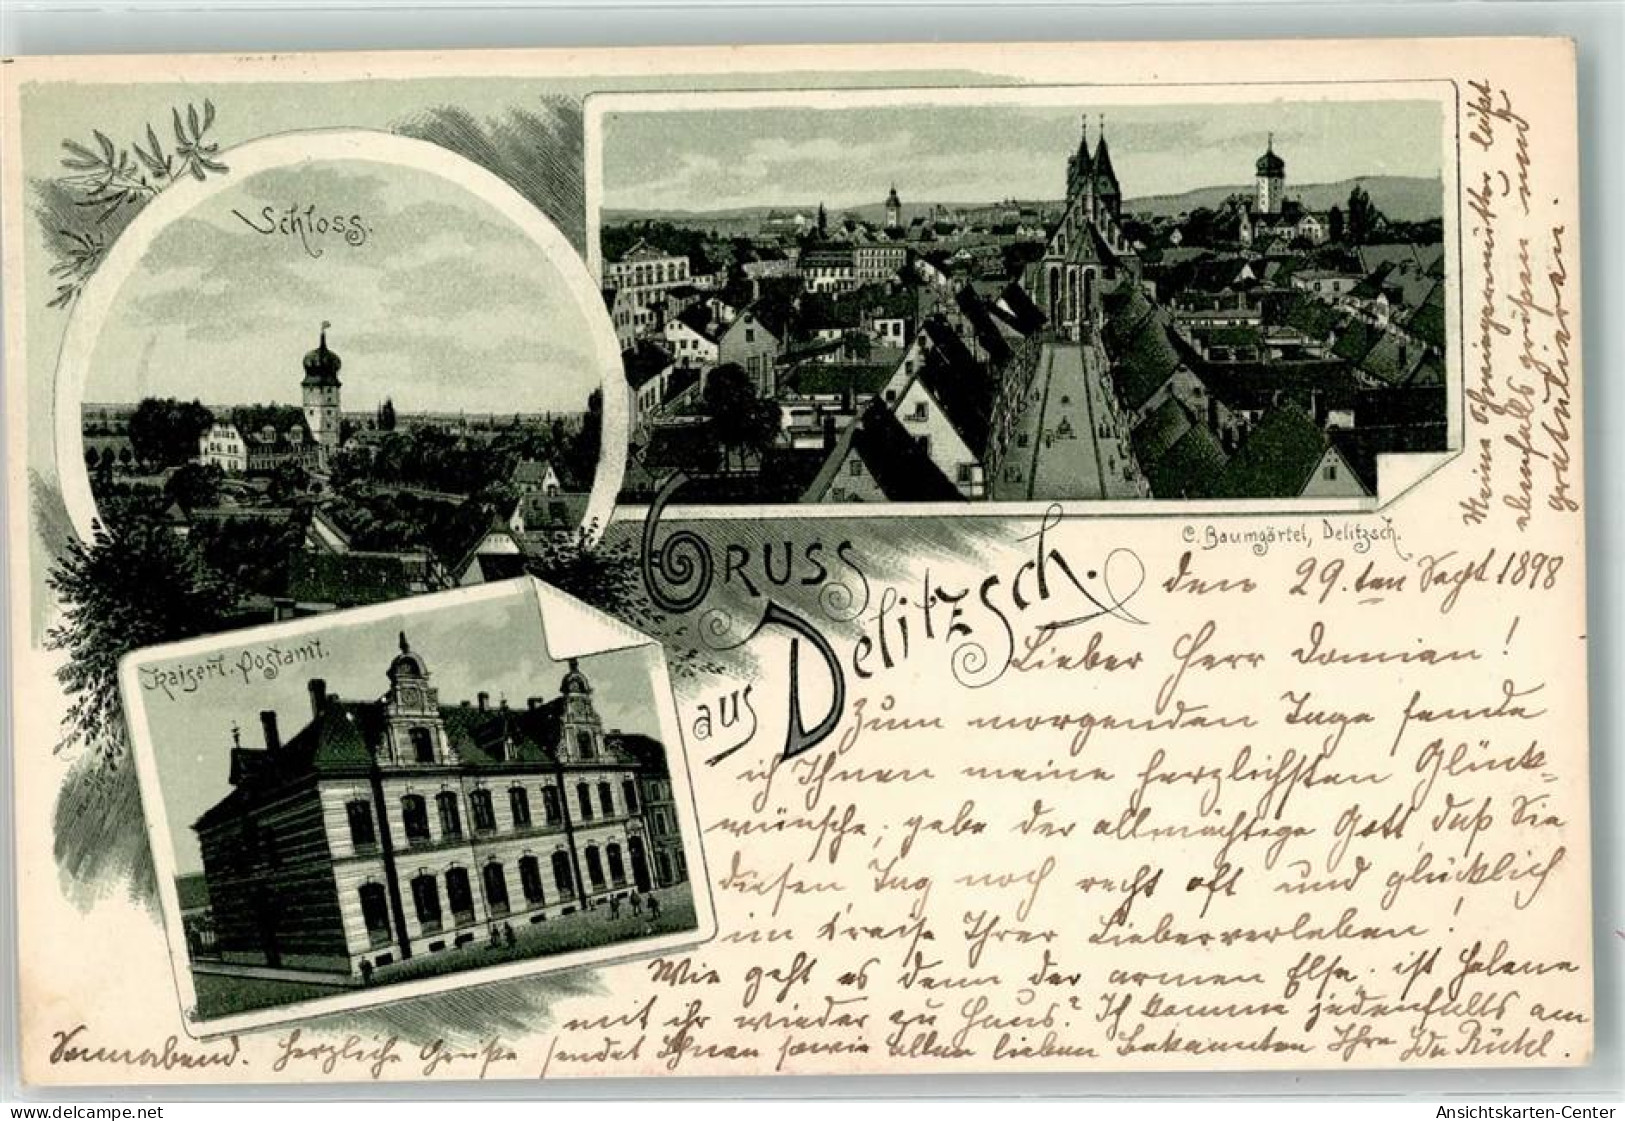 Schloss.
Kaiserl. Postamt.
Gruss
aus Delitzsch.
C. Baumgärtel, Delitzsch.
den 29. ten Sept 1898
Lieber Herr Domian!
Zum morgenden Tage sende
ich Ihnen meine herzlichsten Glück-
wünsche, gebe der allmächtige Gott, daß Sie
diesen Tag noch recht oft und glücklich
im Kreise Ihrer Lieben verleben!
Wie geht es denn der armen Else. ist Helene
mit ihr wieder zu Haus? Ich komme jedenfalls am
Sonnabend. Herzliche Grüße sendet Ihnen sowie allen lieben Bekannten Ihre
Meine Schwiegermutter läßt
ebenfalls grüßen und
gratulieren.
delcampe.net
Ansichtskarten-Center